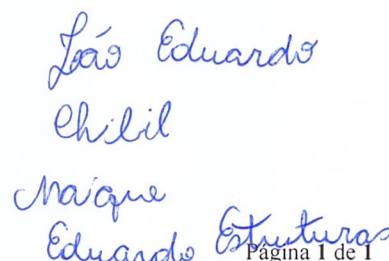 João Eduardo
Chibil
Maique
Eduardo Estruturas
Página 1 de 1